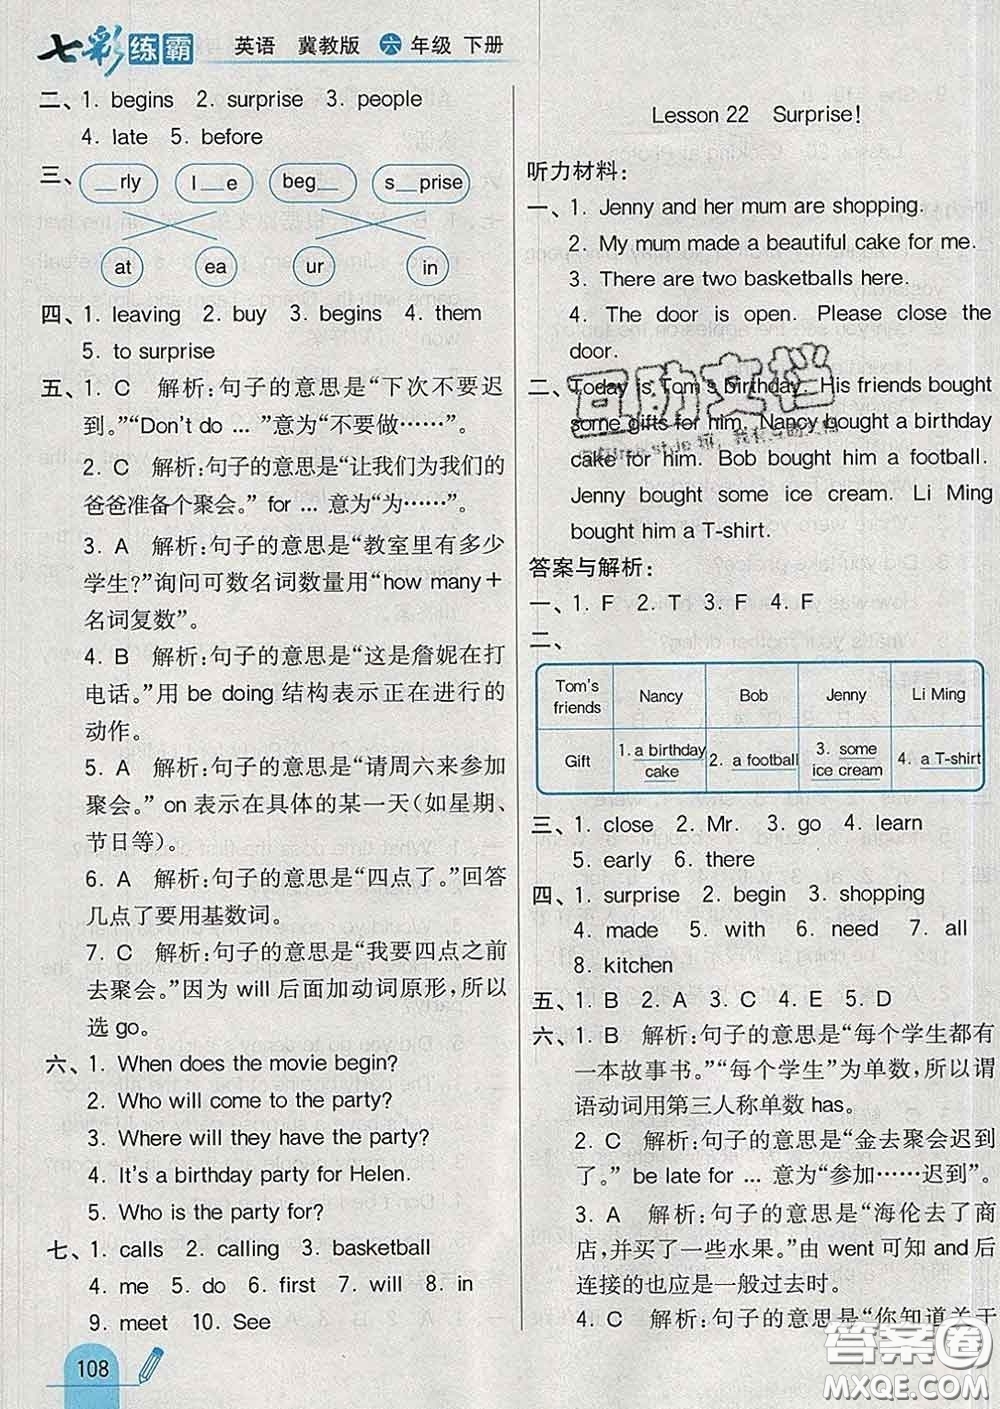 七彩练霸 英语 冀教版 六 年级 下册
二、1. begins 2. surprise 3. people
4. late 5. before
三、 __rly l__e beg__ s__prise
at ea ur in
四、1. leaving 2. buy 3. begins 4. them
5. to surprise
五、1. C 解析：句子的意思是“下次不要迟
到。”“Don't do ... ”意为“不要做……”。
2. C 解析：句子的意思是“让我们为我们的
爸爸准备个聚会。” for ... 意为“为……”。
3. A 解析：句子的意思是“教室里有多少
学生?”询问可数名词数量用“how many＋
名词复数”。
4. B 解析：句子的意思是“这是詹妮在打
电话。”用 be doing 结构表示正在进行的
动作。
5. A 解析：句子的意思是“请周六来参加
聚会。” on 表示在具体的某一天（如星期、
节日等）。
6. A 解析：句子的意思是“四点了。”回答
几点了要用基数词。
7. C 解析：句子的意思是“我要四点之前
去聚会。”因为 will 后面加动词原形，所以
选 go。
六、1. When does the movie begin?
2. Who will come to the party?
3. Where will they have the party?
4. It's a birthday party for Helen.
5. Who is the party for?
七、1. calls 2. calling 3. basketball
4. me 5. do 6. first 7. will 8. in
9. meet 10. See
108
Lesson 22 Surprise!
听力材料：
一、1. Jenny and her mum are shopping.
2. My mum made a beautiful cake for me.
3. There are two basketballs here.
4. The door is open. Please close the
door.
二、Today is Tom's birthday. His friends bought
some gifts for him. Nancy bought a birthday
cake for him. Bob bought him a football.
Jenny bought some ice cream. Li Ming
bought him a T-shirt.
互助文档
答案与解析：
一、1. F 2. T 3. F 4. F
二、
Tom's friends Nancy Bob Jenny Li Ming
Gift 1. a birthday cake 2. a football 3. some ice cream 4. a T-shirt
三、1. close 2. Mr. 3. go 4. learn
5. early 6. there
四、1. surprise 2. begin 3. shopping
4. made 5. with 6. need 7. all
8. kitchen
五、1. B 2. A 3. C 4. E 5. D
六、1. B 解析：句子的意思是“每个学生都有
一本故事书。”“每个学生”为单数，所以谓
语动词用第三人称单数 has。
2. C 解析：句子的意思是“金去聚会迟到
了。” be late for ... 意为“参加……迟到”。
3. A 解析：句子的意思是“海伦去了商
店，并买了一些水果。”由 went 可知 and 后
连接的也应是一般过去时。
4. C 解析：句子的意思是“你知道关于
答案圈
MXQE.COM